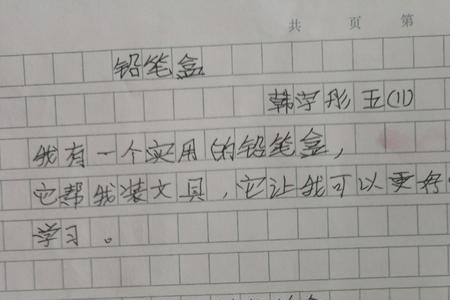 共 页 第
铅笔盒
韩字彤 五(11)
我有一个实用的铅笔盒,
它帮我装文具,它让我可以更好
学习。